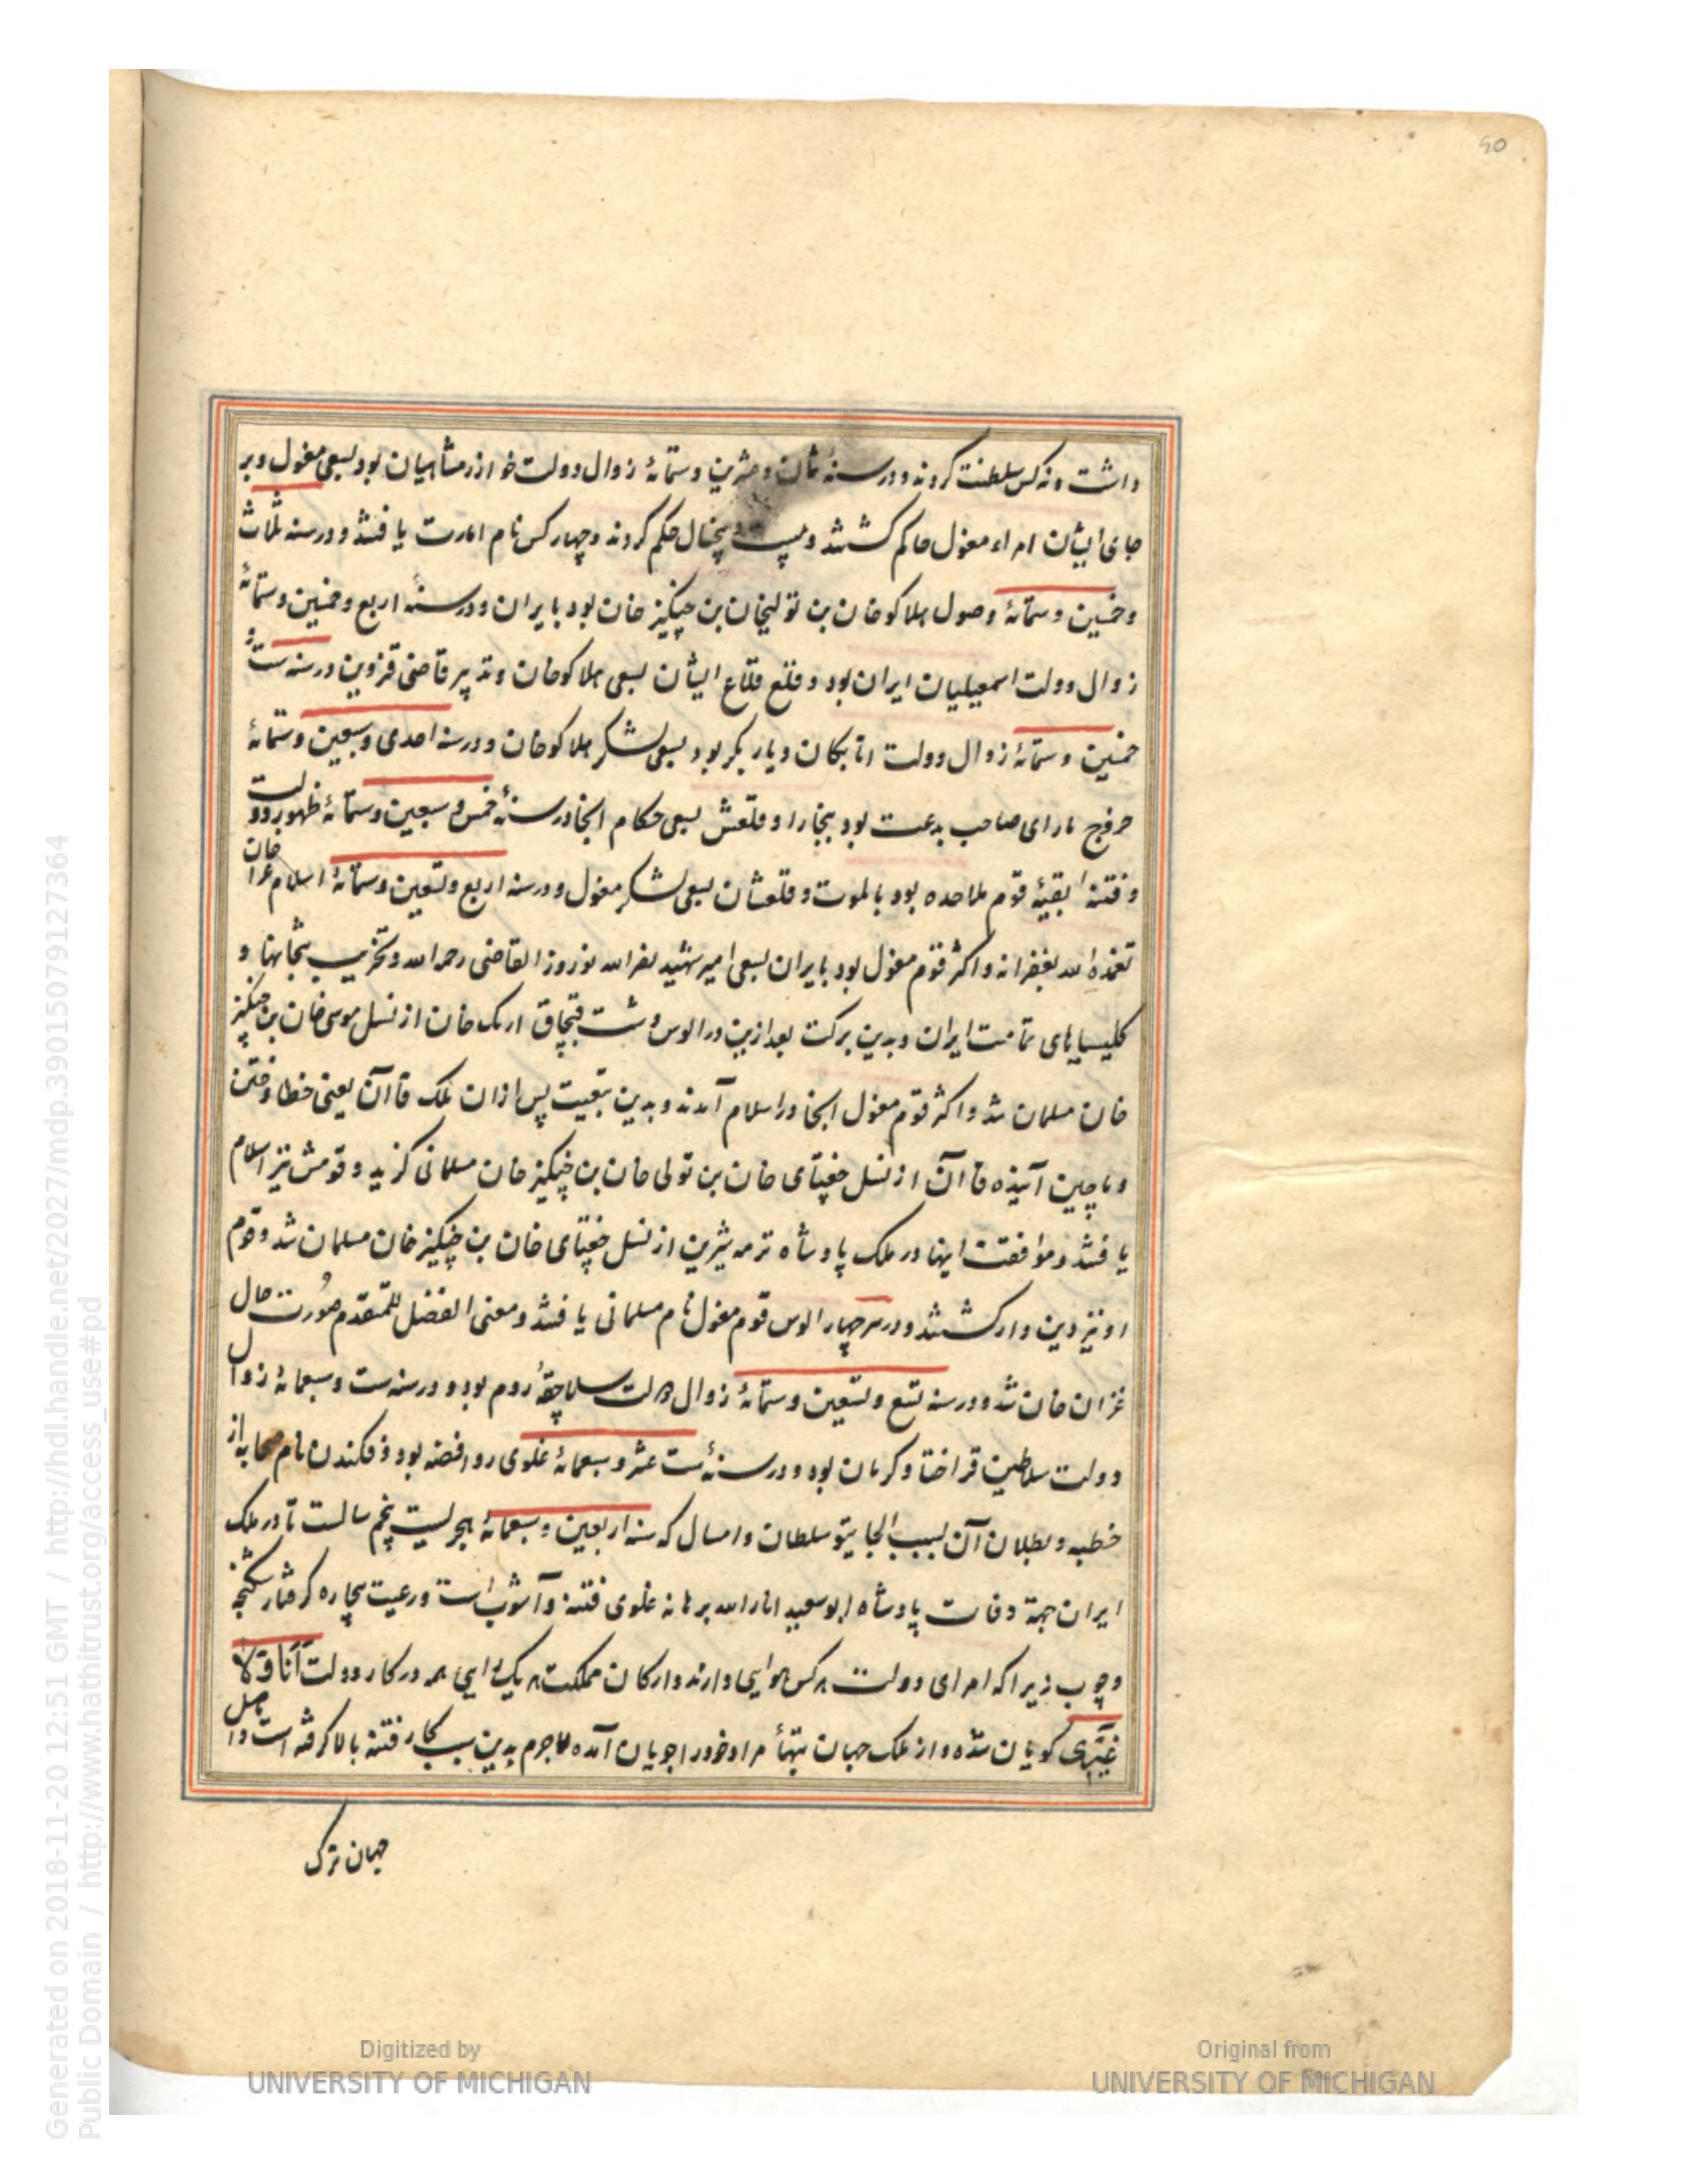 50
داشت و نه کس سلطنت کردند و در سنهٔ ثمان و عشرین و ستمائهٔ زوال دولت خوارزمشاهیان بود بسعی مغول و بر
جای ایشان امراء مغول حاکم گشتند و بیست و پنجسال حکم کردند و چهار کس نام امارت یافتند و در سنه ثلاث
و خمسین و ستمائهٔ وصول هلاکوخان بن تولیخان بن چنکیز خان بود بایران و در سنهٔ اربع و خمسین و ستمائهٔ
زوال دولت اسمعیلیان ایران بود و قلع قلاع ایشان بسعی هلاکوخان و تدبیر قاضی قزوین در سنه ست
خمسین و ستمائهٔ زوال دولت اتابکان دیار بکر بود بسعی لشکر هلاکوخان و در سنه احدی و سبعین و ستمائهٔ
خروج تارای صاحب بدعت بود ببخارا و قلعش بسعی حکام آنجا در سنهٔ خمس و سبعین و ستمائهٔ ظهور دولت
و فتنه بقیهٔ قوم ملاحده بود بالموت و قلعشان بسعی لشکر مغول و در سنه اربع و تسعین و ستمائهٔ اسلام غزان خان
تغمده الله بغفرانه و اکثر قوم مغول بود بایران بسعی امیر شهید نصر الله نوروز القاضی رحمه الله و تخریب بتخانها و
کلیساهای تمامت ایران و بدین برکت بعد ازین در الوس دشت قبچاق ازبک خان از نسل موسی خان بن چنکیز
خان مسلمان شد و اکثر قوم مغول آنجا در اسلام آمدند و بدین تبعیت پس ازان ملک قاآن یعنی خطا و ختن
و ماچین آینده قاآن از نسل جغتای خان بن تولی خان بن چنکیز خان مسلمانی کزید و قومش نیز اسلام
یافتند و موافقت اینها در ملک پادشاه ترمه شیرین از نسل جغتای خان بن چنکیز خان مسلمان شد و قوم
او نیز دین دار گشتند و در هر چهار الوس قوم مغول نام مسلمانی یافتند و معنی الفضل للمتقدم صورت حال
غزان خان شد و در سنه تسع و تسعین و ستمائهٔ زوال دولت سلاجقهٔ روم بود و در سنه ست و سبعمائهٔ زوال
دولت سلاطین قراختا و کرمان بود و در سنهٔ ست عشر و سبعمائهٔ غلوی روافضه بود و فکندن نام صحابه از
خطبه و بطلان آن بسبب الجایتو سلطان و امسال که سنه اربعین و سبعمائهٔ هجریست پنجم سالست تا در ملک
ایران جهة وفات پادشاه ابوسعید انار الله برهانه غلوی فتنه و آشوب است و رعیت بیچاره کرفتار شکنجه
و چوب زیرا که امرای دولت هر کس هوایی دارند و ارکان مملکت هر یک رایی همه در کار دولت انا و لا
غیری کویان شده و از ملک جهان بتنها مراد خود را جویان آمده لاجرم بدین سبب کار فتنه بالا کرفته است و اهل
جهان ترک
Digitized by
UNIVERSITY OF MICHIGAN
Original from
UNIVERSITY OF MICHIGAN
Generated on 2018-11-20 12:51 GMT / http://hdl.handle.net/2027/mdp.39015079127364
Public Domain / http://www.hathitrust.org/access_use#pd